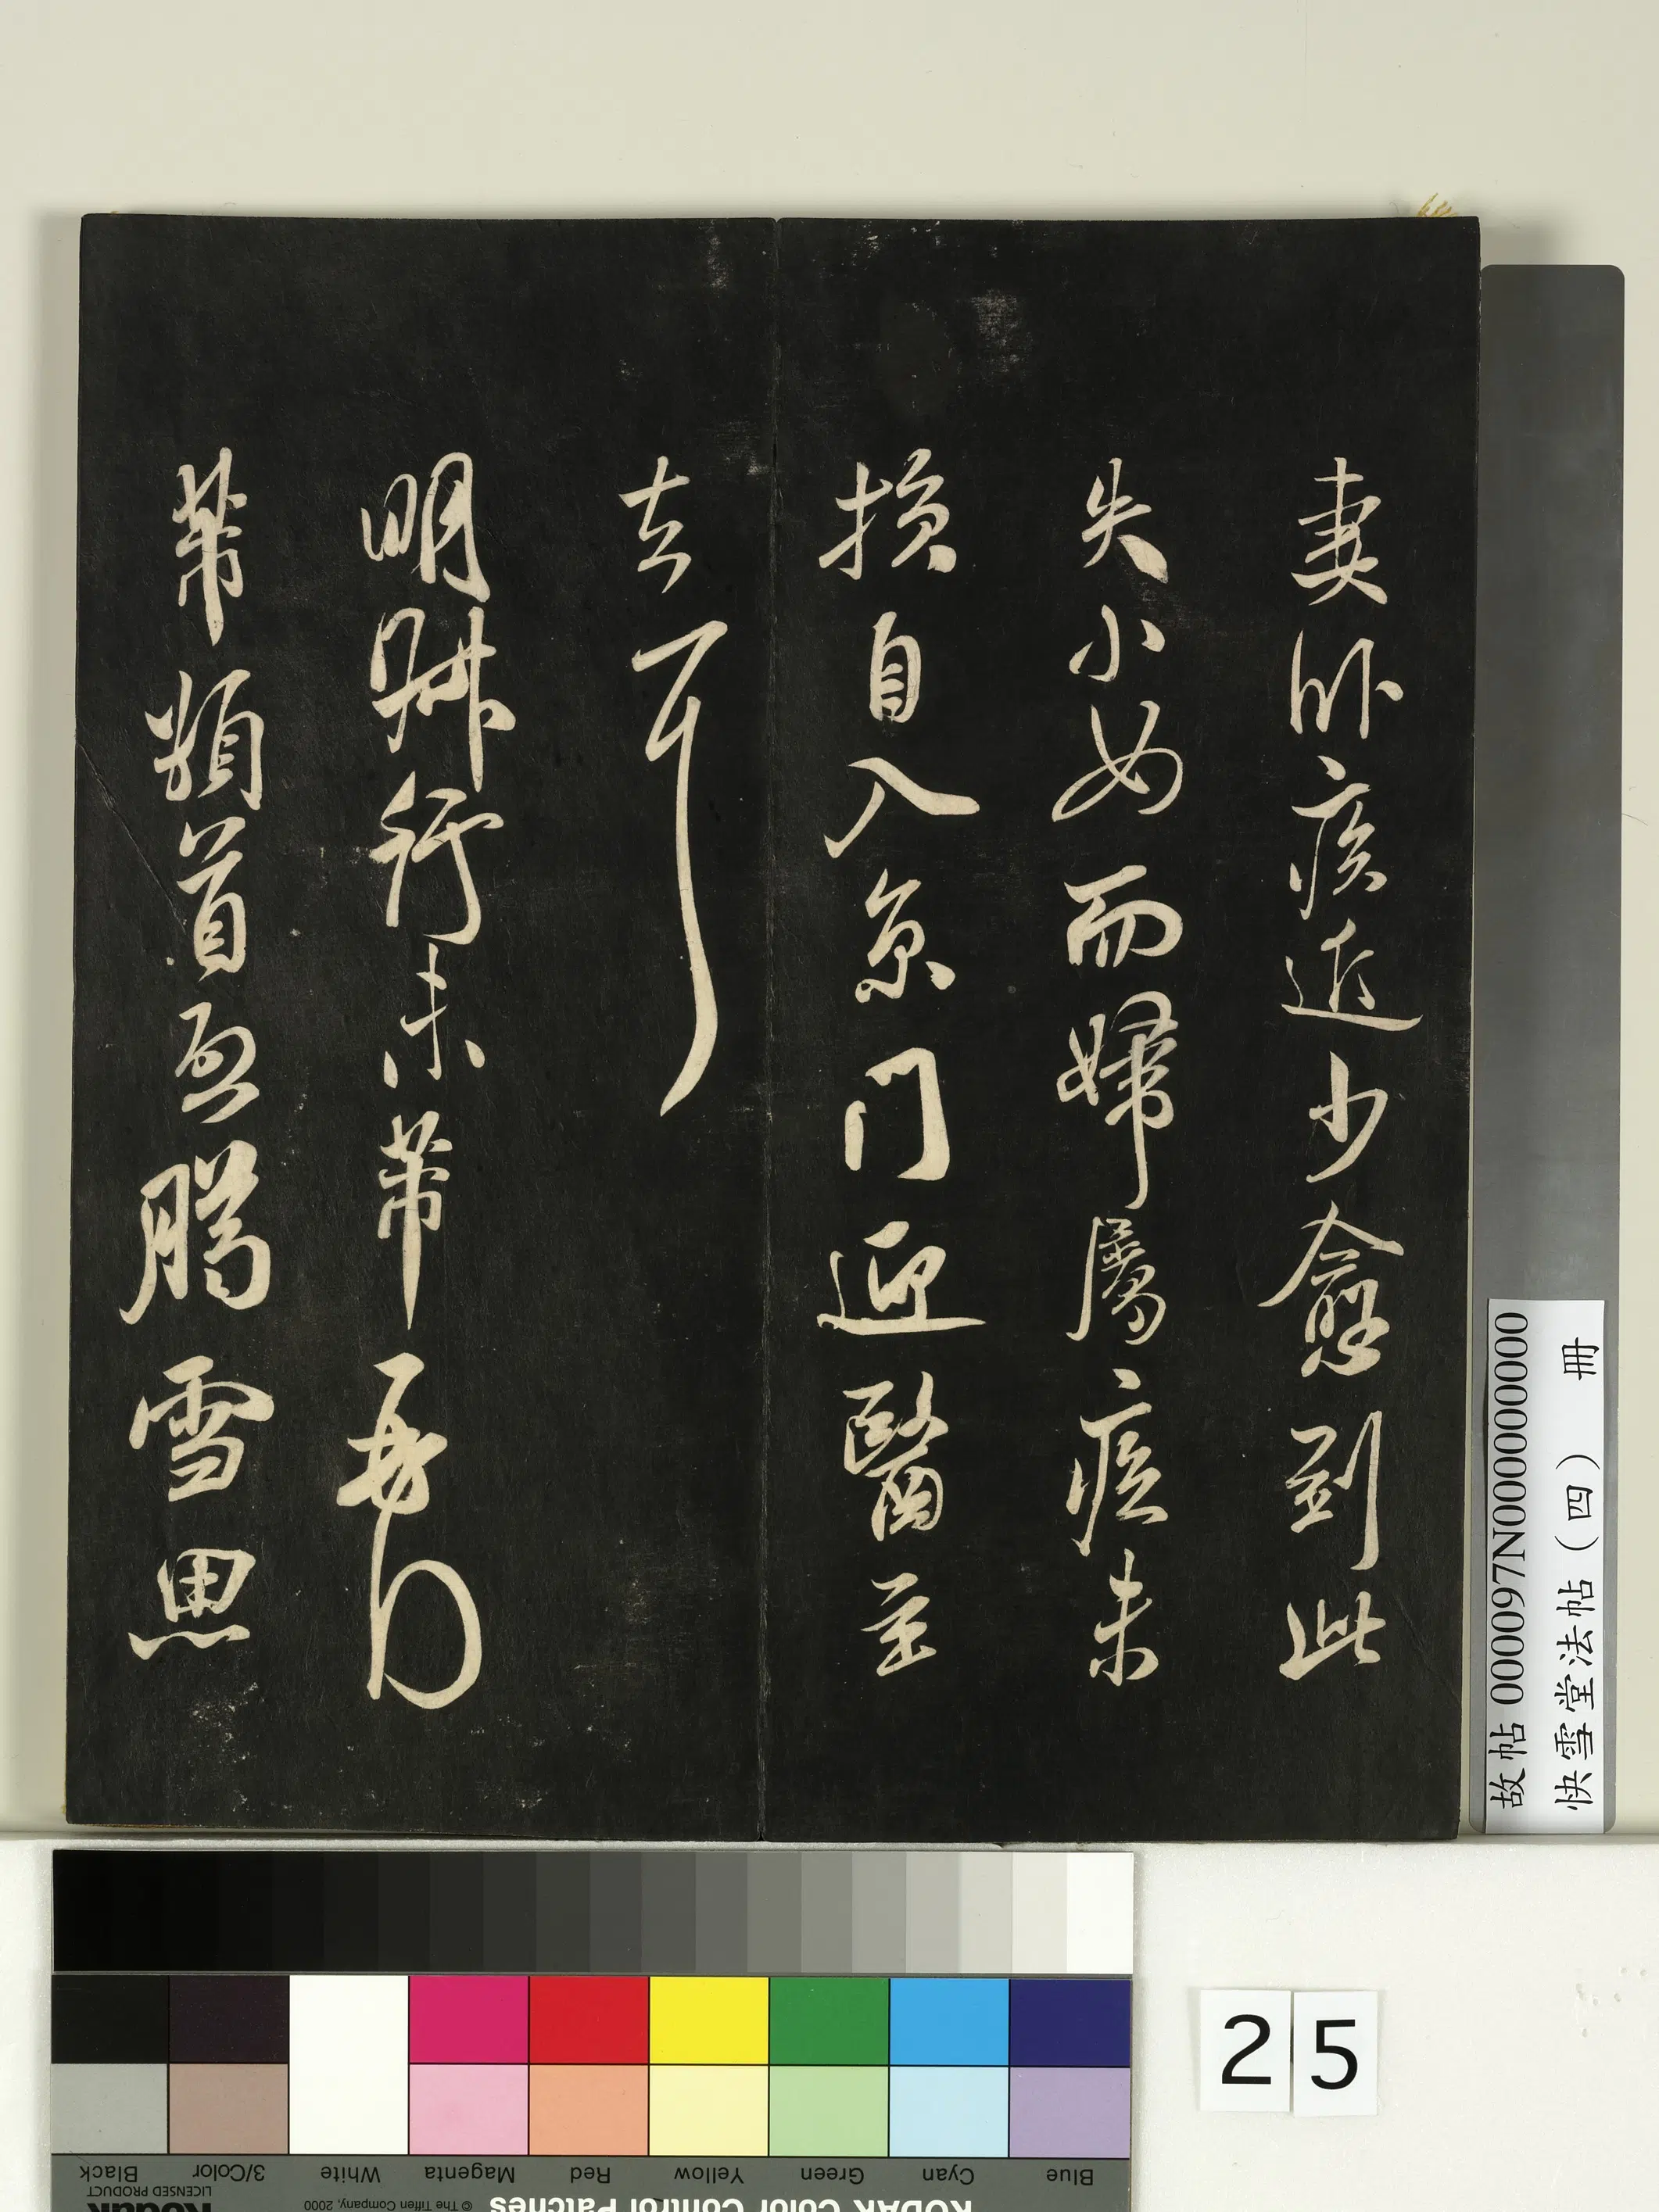 妻卧疾近少愈到此
失小女而婦屬疾未
損自入京门迎醫至
明行未芾再拜
芾頓首啓臘雪思
故帖 000097N000000000
快雪堂法帖（四） 冊
25
Blue Cyan Green Yellow Red Magenta White 3/Color Black
KODAK Color Control Patches © The Tiffen Company, 2000 Kodak LICENSED PRODUCT